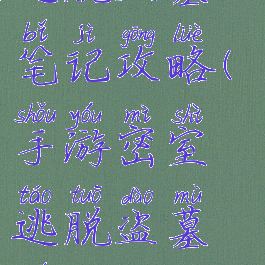 bǐ jì gōng lüè
笔记攻略(
shǒu yóu mì shì
手游密室
táo tuō dào mù
逃脱盗墓